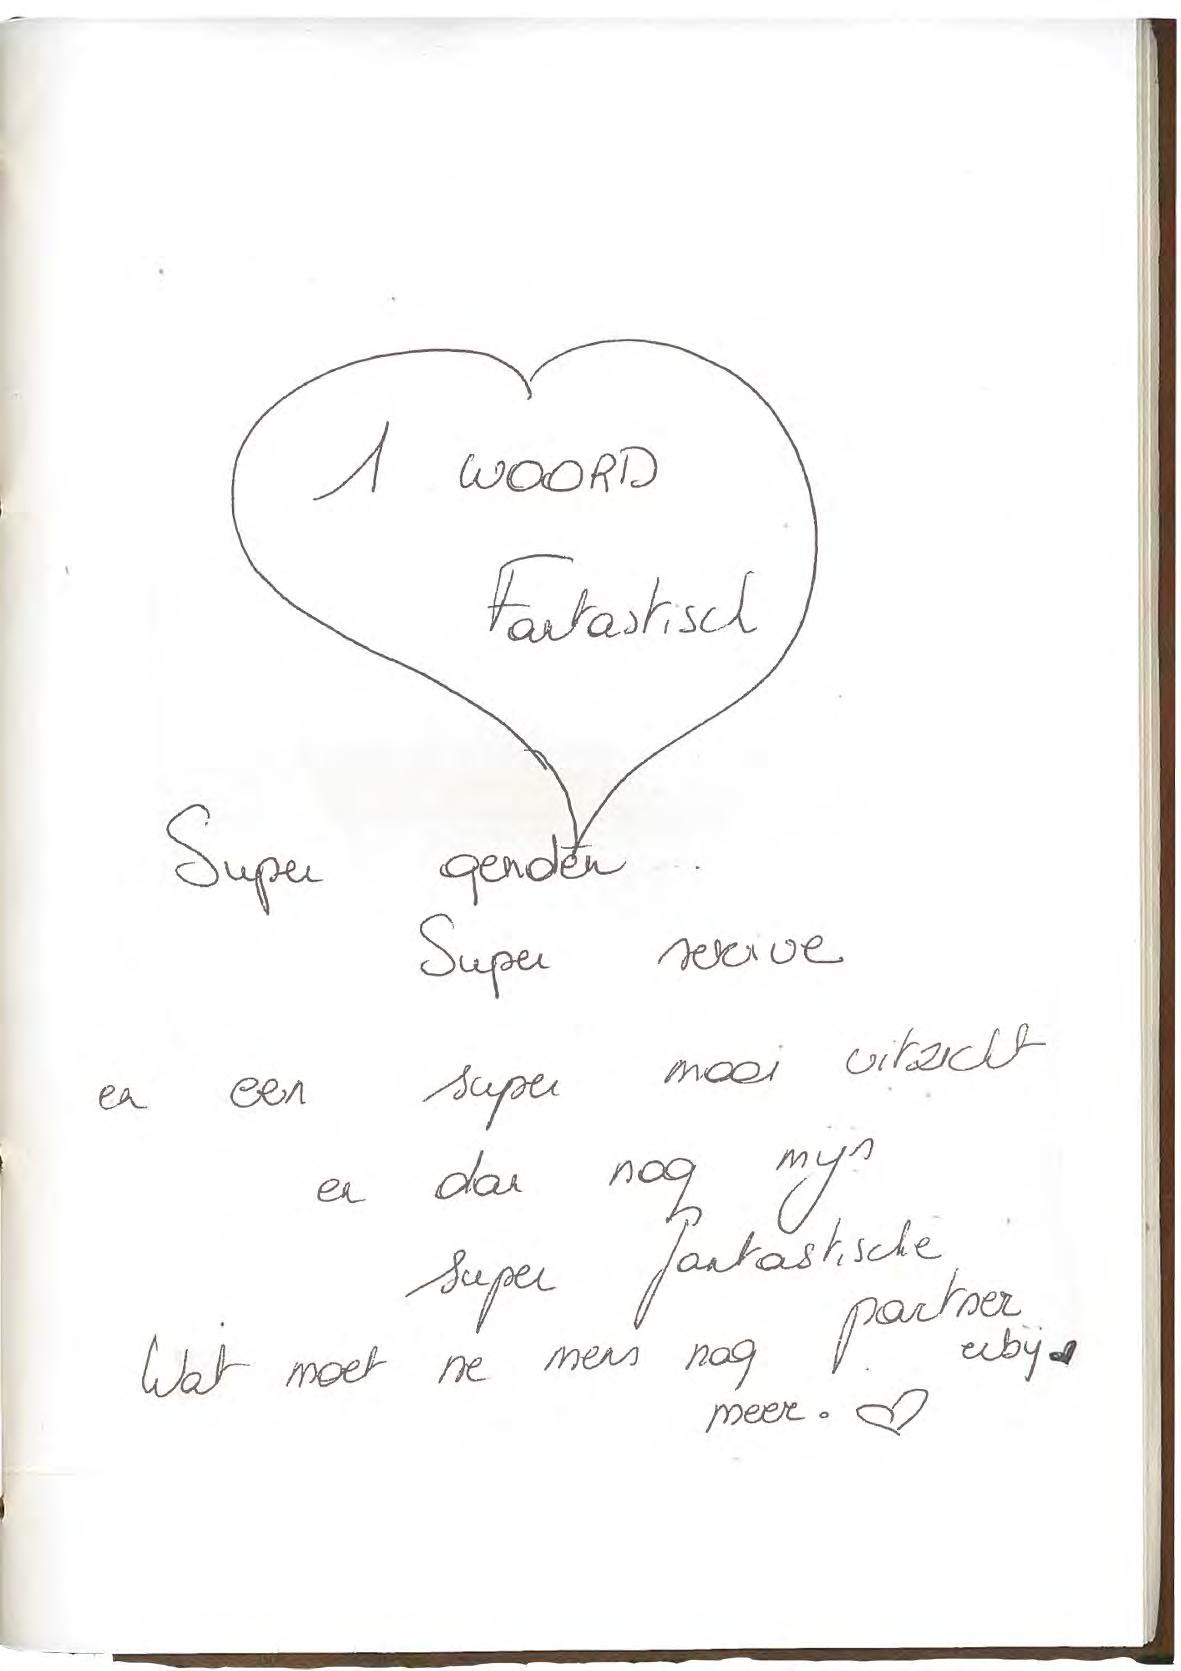 1 WOORD
Fantastisch
Super genoten ...
Super service
en een super mooi uitzicht
en dan nog mijn
super fantastische
partner
erbij
Wat moet ne mens nog
meer.